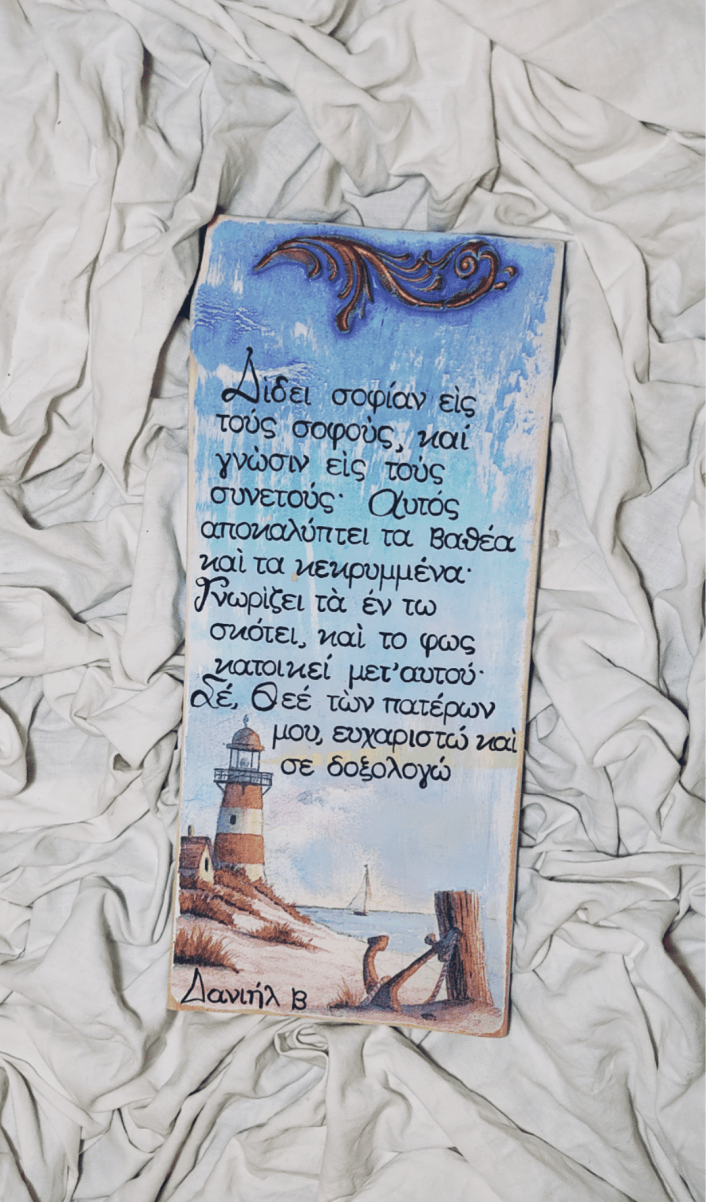 Δίδει σοφίαν εἰς
τούς σοφοὺς, καί
γνὼσιν εἰς τοὺς
συνετούς· Αυτός
αποκαλύπτει τα Βαθέα
καὶ τα κεκρυμμένα·
Γνωρὶζει τὰ ἐν τω
σκότει, καὶ το φως
κατοικεί μετ'αυτού·
Σέ, Θεέ τὼν πατέρων
μου, ευχαριστώ καὶ
σε δοξολογώ
Δανιήλ Β